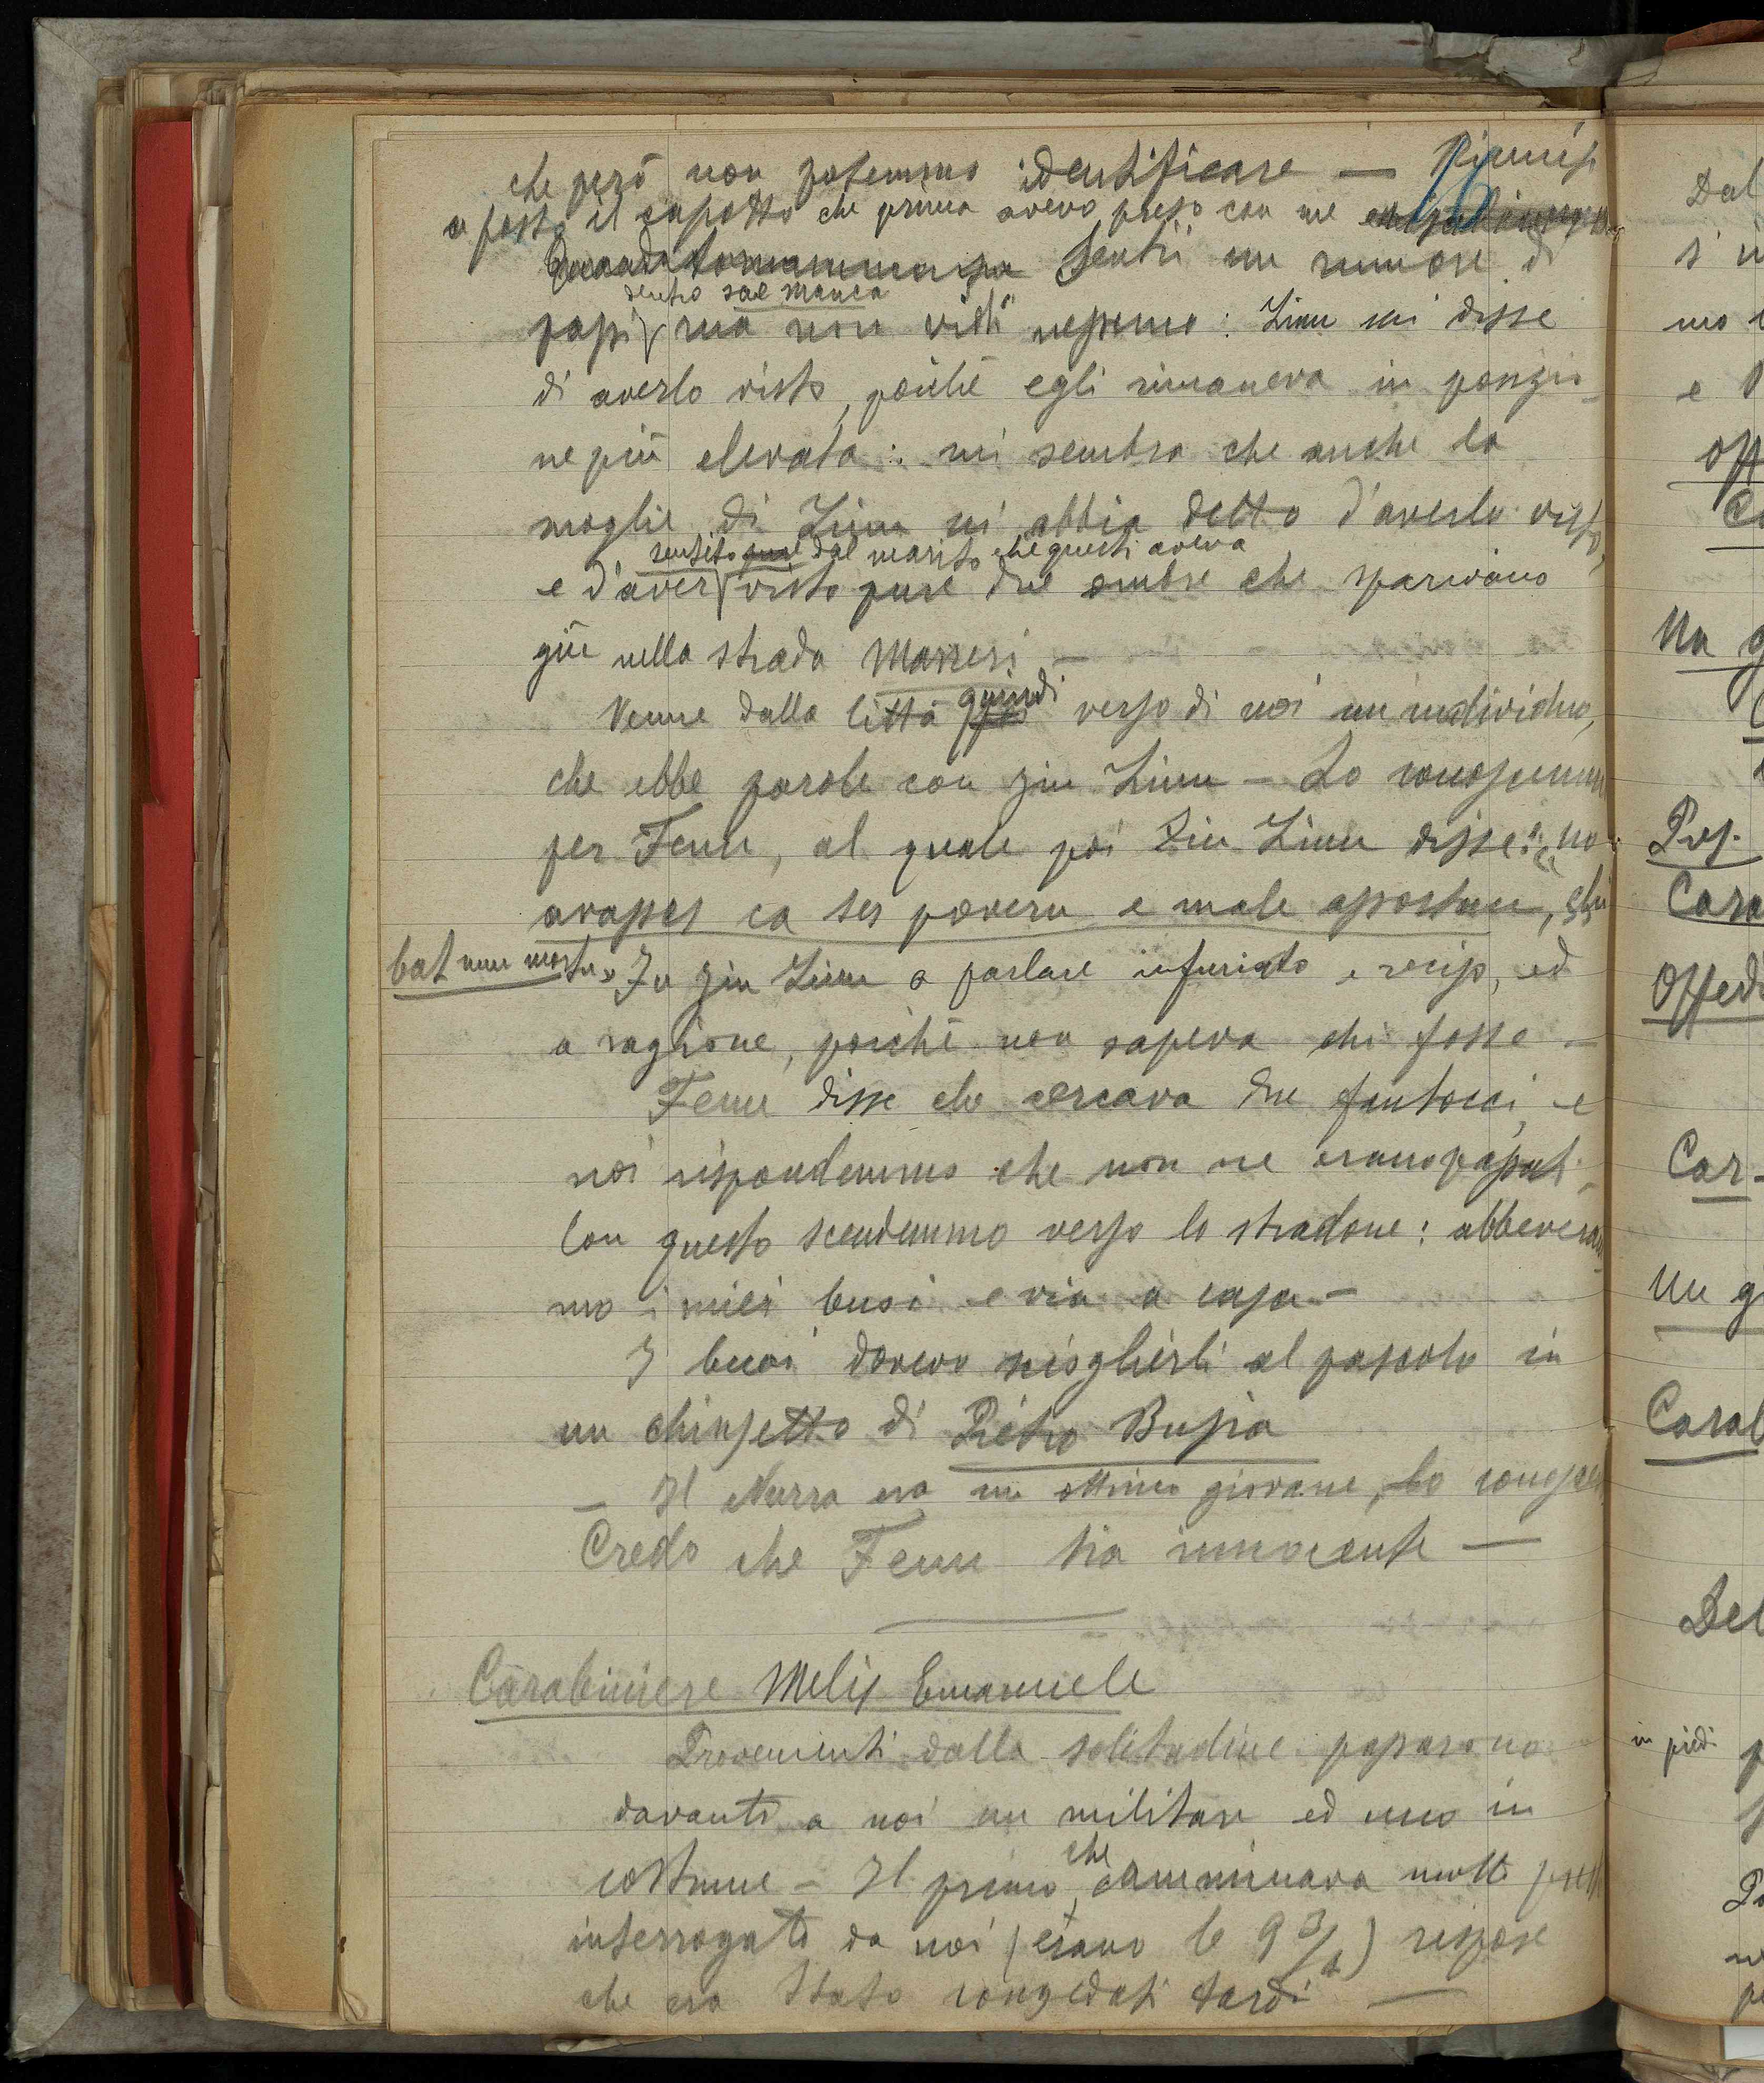 16
che però non potemmo identificare — Rimisi
a posto il capotto che prima avevo preso con me
Sentii un rumore di
dentro sae Manca
passi ma non vidi nessuno: Zinu mi disse
di averlo visto, poichè egli rimaneva in posizio-
ne più elevata: mi sembra che anche la
moglie di Zinu mi abbia detto d'averlo visto,
sentito pure dal marito che questi aveva
e d'aver visto pure due ombre che sparivano
giù nella strada Manresi —
Venne dalla Città poi quindi verso di noi un individuo,
che ebbe parole con ziu Zinu — Lo conoscemmo
per Fenu, al quale poi Ziu Zinu disse: "no
arasses ca ses poveru e male apostu, chi
bat unu mortu" Fu ziu Zinu a parlare infuriato e reciso, ed
a ragione, poichè non sapeva chi fosse —
Fenu disse che cercava due fantocci, e
noi rispondemmo che non ne erano passati —
Con questo scendemmo verso lo stradone: abbeveram-
mo i miei buoi e via a casa —
I buoi dovevo scioglierli al pascolo in
un chiusetto di Pietro Busia
— Il Nurra era un ottimo giovane, lo conoscevo
Credo che Fenu sia innocente —
Carabiniere Melis Emanuele
Provenienti dalla solitudine passarono
davanti a noi un militare ed uno in
costume — Il primo, che camminava molto presto
interrogato da noi (erano le 9 3/4) rispose
che era stato congedato tardi —
Dal
s' i
mo
e
Off
Un g
Pres.
Cara
Offedd
Car.
Un gi
Carab
Del
in piedi